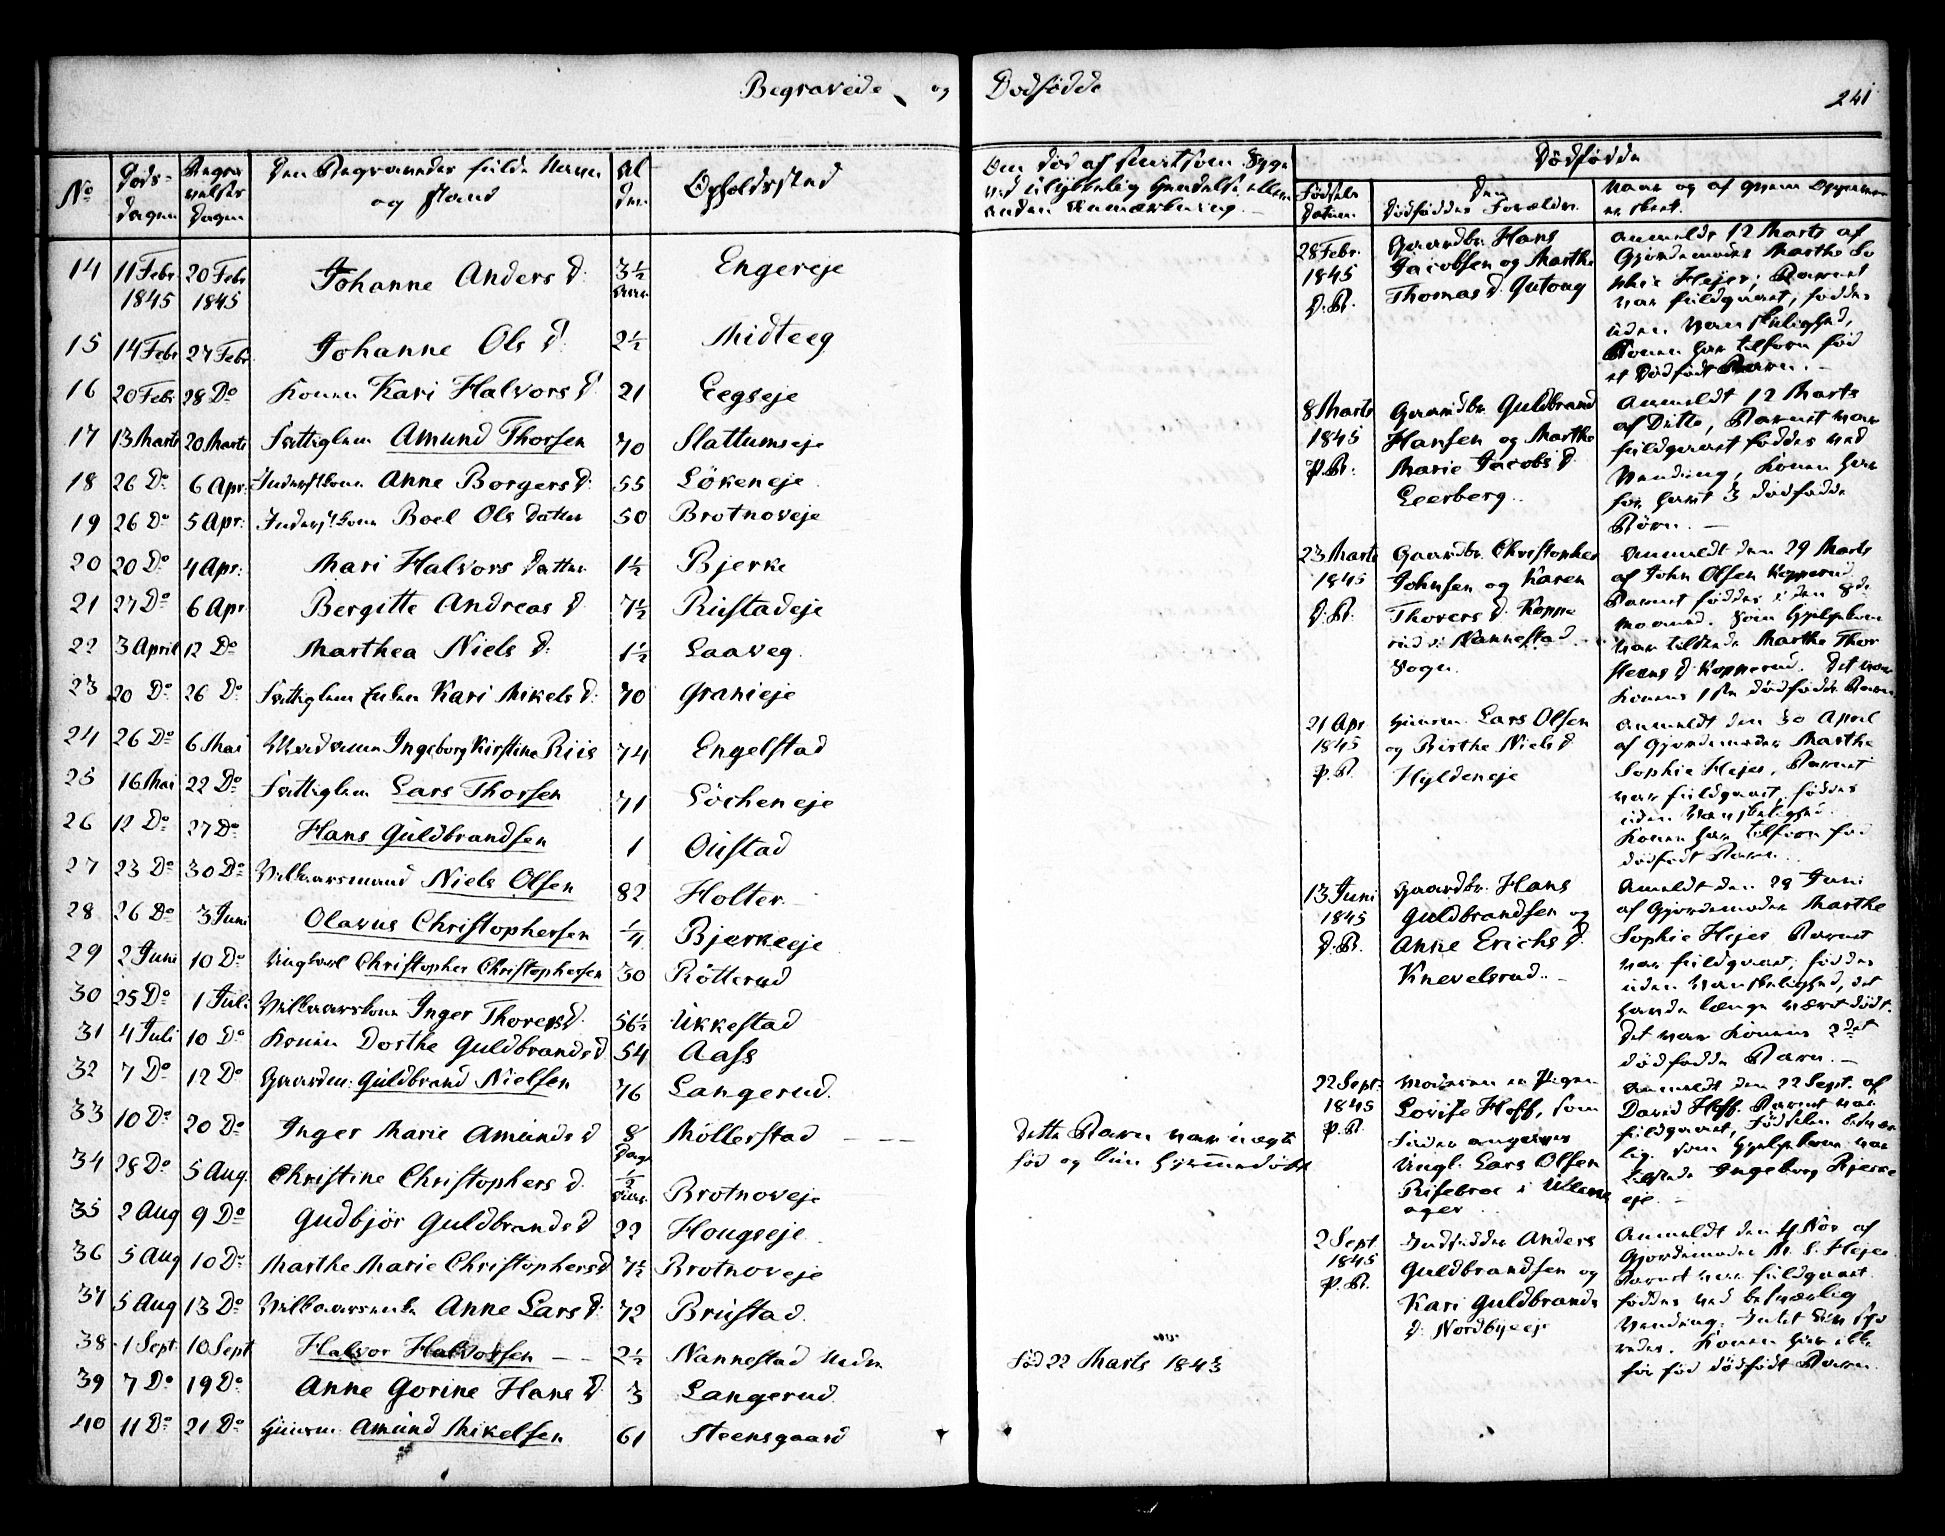 Begravede og Dødfødde
241
No
Døds-
dagen
Begra
velses
dagen
Den Begravedes fulde Navn
og Stand
Al
der
Opholdssted
Om død af smitsom Syge
ved ulykkelig Hendelse eller
anden Anmærkning.
Dødfødde
Fødsels
Datum
Den
Dødføddes Forældre.
Naar og af hvem Opgivelsen
er skeet.
14 11 Febr. 1845 20 Febr 1845 Johanne Anders D. 3½ Engereje
15 14 Febr 27 Febr. Johanne Ols D. 2½ Midteeg
16 20 Febr 28 Do Konen Kari Halvors D 21 Eegseje
17 13 Marts 20 Marts Fattiglem Amund Thorsen 70 Slattumseje
18 26 Do 6 Apr. Anne Borgers D. 55 Lökeneje
19 26 Do 5 Apr. Boel Ols Datter 50 Brotnoveje
20 20 Do 4 Apr. Mari Halvors Datter 1½ Bjerke
21 27 Do 6 Apr Bergitte Andreas D 7½ Rustadeje
22 3 April 12 Do Marthea Niels D. 1½ Laaveg
23 20 Do 26 Do Fattiglem Enken Kari Mikels D. 70 Granieje
24 26 Do 6 Mai Ingeborg Kirstine Riis 74 Engelstad
25 16 Mai 22 Do Fattiglem Lars Thorsen 71 Löcheneje
26 12 Do 27 Do Hans Guldbrandsen 1 Oustad
27 23 Do 30 Do Vilkaarsmand Niels Olsen 82 Holter
28 26 Do 3 Juni Olavus Christophersen ¼ Bjerkeeje
29 2 Juni 10 Do Ungkarl Christopher Christophersen 30 Rötterud
30 25 Do 1 Juli Vilkaarskone Inger Thorers D. 56½ Ukkestad
31 4 Juli 10 Do Konen Dorthe Guldbrands D 54 Aass
32 7 Do 12 Do Gaardm. Guldbrand Nielsen 76 Langerud.
33 10 Do 20 Do Inger Marie Amunds D 8 Dage Möllerstad
dette Barn var uægte
fød og hjemmedøbt
34 28 Do 5 Aug. Christine Christophers D. ½ Brotnoveje
35 2 Aug 9 Do Gudbjør Guldbrands D 22 Hougseje
36 5 Aug 10 Do Marthe Marie Christophers D 7½ Brotnoveje
37 5 Aug 13 Do Anne Lars D. 72 Brustad.
38 1 Sept 10 Sept Halvor Halvorsen 2½ Nannestad Nedre
fød 22 Marts 1843
39 7 Do 19 Do Anne Gorine Hans D 3 Langerud
40 11 Do 21 Do Huusm. Amund Mikelsen 61 Steensgaard
28 Febr.
1845
D.B.
Gaardbr. Hans
Jacobsen og Marthe
Thomas D. Gutoug
Anmeldt 12 Marts af
Gjordemoder Marthe So
phie Hejer; Barnet
var fuldbaaret, føddes
uden Vanskelighed,
Konen har tilforn fød
et Dødfødt Barn.
8 Marts
1845
P.B.
Gaardbr. Guldbrand
Hansen og Marthe
Marie Jacobs D.
Leerberg.
Anmeldt 12 Marts
af Ditto, Barnet var
fuldbaaret føddes ved
Vending, Konen har
før havt 3 dødfødde
Børn.
23 Marts
1845
D.B.
Gaardbr. Christopher
Johnsen og Karen
Thorers D. Koppe
rud i Nannestad
Sogn.
Anmeldt den 29 Marts
af John Olsen Kopperud
Barnet føddes i den 8de
Maaned. Som Hjelpekone
var tilstede Marthe Thor
steens D. Kopperud. Det var
Konens 1ste dødfødde Barn
21 Apr
1845
P.B.
Huusm. Lars Olsen
og Birthe Niels D
Hyldeneje
Anmeldt den 30 April
af Gjordemoder Marthe
Sophie Hejer, Barnet
var fuldbaaret, føddes
uden Vanskelighed.
Konen har tilforn fød
dødfødt Barn.
13 Juni
1845
D.B.
Gaardbr. Hans
Guldbrandsen og
Anne Erichs D.
Knevelsrud.
Anmeldt den 28 Juni
af Gjordemoder Marthe
Sophie Hejer Barnet
var fuldbaaret, føddes
uden Vanskelighed, det
havde længe været dødt.
det var Konens 2det
dødfødde Barn.
22 Sept.
1845
P.B.
Moderen er Pigen
Lovise Hoff, som
Fader angives
Ungk. Lars Olsen
Risebroe i Ullens
ager
Anmeldt den 22 Sept. af
David Hoff. Barnet var
fuldbaaret, Fødselen besvær
lig. Som Hjelpekone var
tilstede Ingeborg Bjerke
eje.
2 Sept
1845
P.B.
Indsidder Anders
Guldbrandsen og
Kari Guldbrands
D. Nordbyeeje
Anmeldt den 4 Nov af
Gjordemoder M. S. Hejer.
Barnet var fuldbaaret
føddes ved besværlig
Vending.
Konen har ikke
før fød dødfødt Barn.